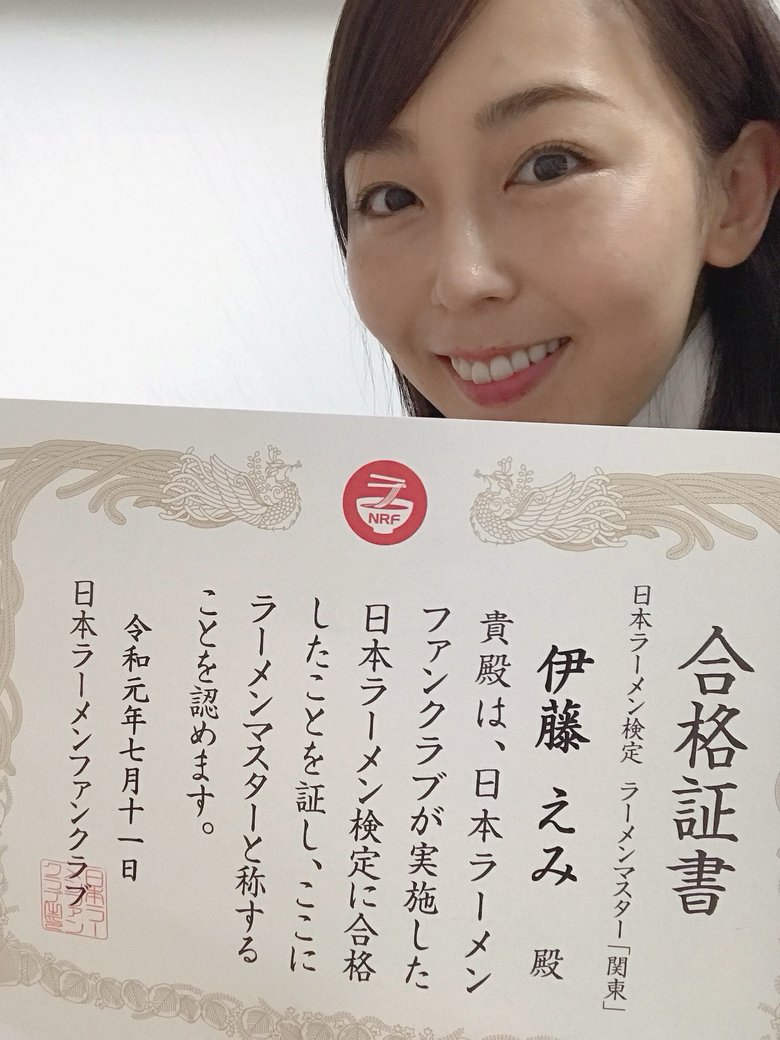 NRF
合格証書
日本ラーメン検定 ラーメンマスター「関東」
伊藤 えみ 殿
貴殿は、日本ラーメン
ファンクラブが実施した
日本ラーメン検定に合格
したことを証し、ここに
ラーメンマスターと称する
ことを認めます。
令和元年七月十一日
日本ラーメンファンクラブ